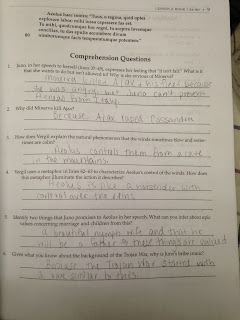 VERGIL'S BOOK I 50-80 • 9
Aeolus haec contra: "Tuus, o regina, quid optes
explorare labor; mihi iussa capessere fas est.
Tu mihi, quodcumque hoc regni, tu sceptra Iovemque
concilias, tu das epulis accumbere divum
80 nimborumque facis tempestatumque potentem."
Comprehension Questions
1. Juno, in her speech to herself (lines 37-49), expresses her feeling that "it isn't fair." What is it
that she wants to do but isn't allowed to? Why is she envious of Minerva?
Minerva killed Ajax + his fleet because
she was angry but Juno can't prevent
Aeneas from Italy.
2. Why did Minerva kill Ajax?
Because Ajax raped Cassandra
3. How does Vergil explain the phenomenon that the winds sometimes blow and some-
times are calm?
Aeolus controls them from a cave
in the mountains.
4. Vergil uses a metaphor in lines 62-63 to characterize Aeolus's control of the winds. How does
this metaphor illuminate the action it describes?
Aeolus is like a horse rider with
control over the reins
5. Identify two things that Juno promises to Aeolus in her speech. What can you infer about epic
values concerning marriage and children from this?
A beautiful nymph wife and that he
will be a father so these things are valued
6. Given what you know about the background of the Trojan War, why is Juno's bribe ironic?
Because the Trojan War started with
a bribe similar to this.